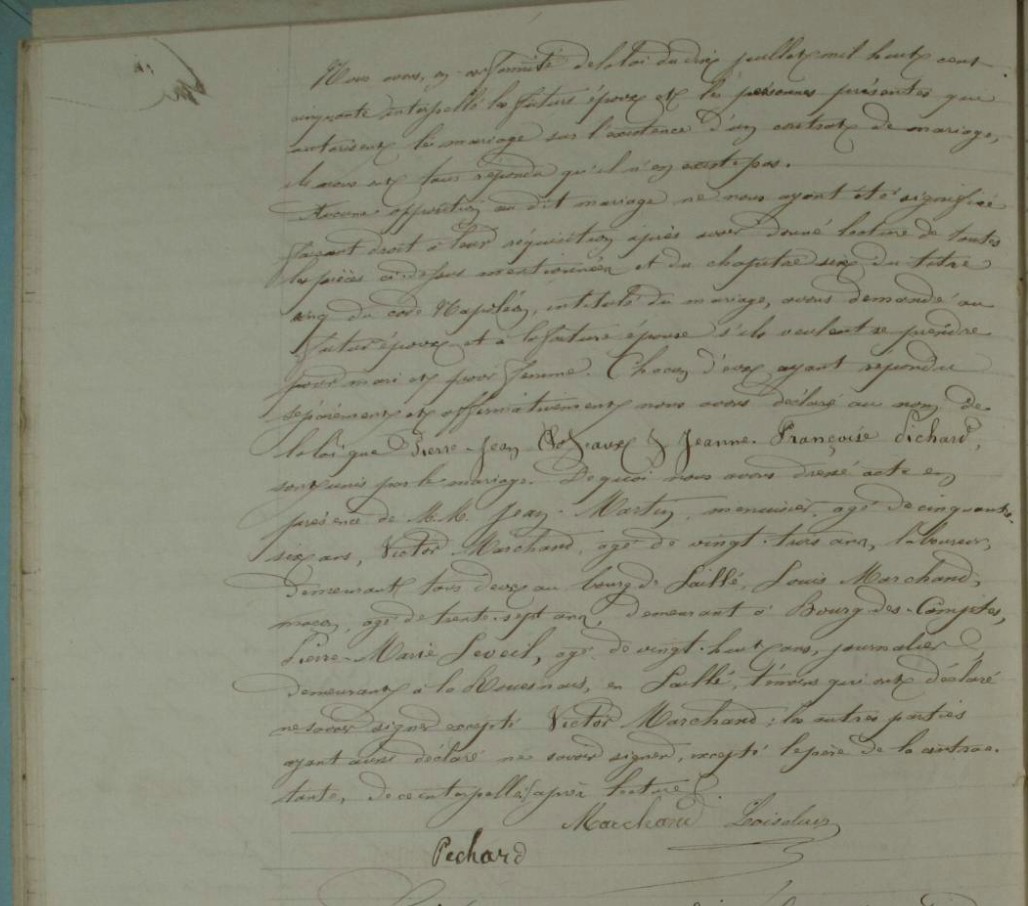 Nous avons, en conformité de la loi du dix juillet mil huit cent
cinquante interpellé les futurs époux et les personnes présentes qui
autorisent le mariage sur l'existence d'un contrat de mariage,
ils nous ont tous répondu qu'il n'en existe pas.
Aucune opposition au dit mariage ne nous ayant été signifiée
faisant droit à leur réquisition après avoir donné lecture de toutes
les pièces ci-dessus mentionnées et du chapitre six du titre
cinq du code Napoléon, intitulé du mariage, avons demandé au
futur époux et à la future épouse s'ils veulent se prendre
pour mari et pour femme. Chacun d'eux ayant répondu
séparément et affirmativement nous avons déclaré au nom de
la loi que Pierre-Jean & Jeanne-Françoise Pichard,
sont unis par le mariage. De quoi nous avons dressé acte en
présence de M.M. Jean Martin, menuisier, agé de cinquante-
six ans, Victor Marchand, agé de vingt-trois ans, laboureur,
demeurant tous deux au bourg de Saillé, Louis Marchand,
maçon, agé de trente-sept ans, demeurant à Bourg-des-Comptes,
Pierre-Marie Leveil, agé de vingt-huit ans, journalier,
demeurant à la en Saillé, témoins qui ont déclaré
ne savoir signer excepté Victor Marchand; les autres parties
ayant aussi déclaré ne savoir signer, excepté le père de la contrac-
tante, de ce interpellés après lecture.
Marchand Loiseleur
Pechard